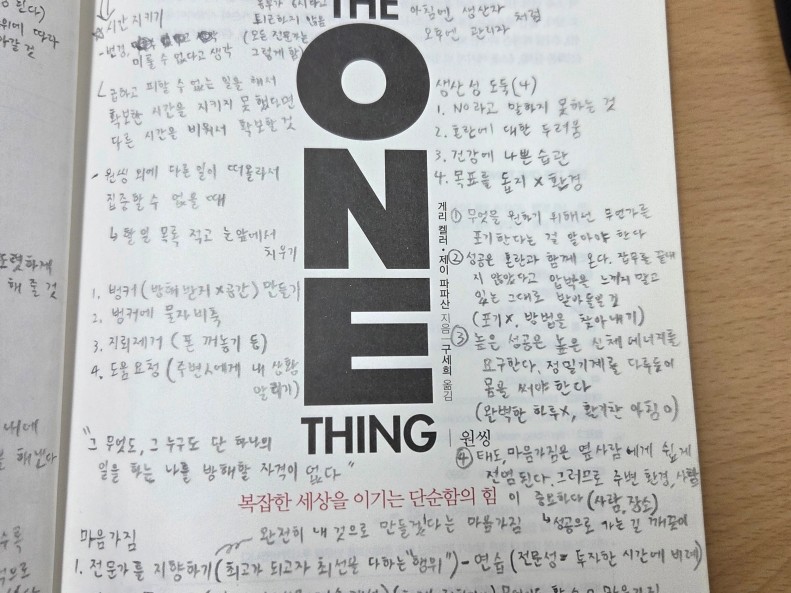 시간 지키기
THE
아침엔 생산자 처럼
오후엔 관리자
퇴근하지 않음
(모든 전문가는
그렇게 함)
- 변경,
미룰 수 없다고 생각
급하고 피할 수 없는 일을 해서
확보한 시간을 지키지 못했다면
다른 시간을 비워서 확보할 것
- 원씽 외에 다른 일이 떠올라서
집중할 수 없을 때
↳ 할 일 목록 적고 눈앞에서
치우기
1. 벙커 (방해 받지 X 공간) 만들기
2. 벙커에 물자 비축
3. 지뢰제거 (폰 꺼놓기 등)
4. 도움 요청 (주변人에게 내 상황
알리기)
"그 무엇도, 그 누구도 단 하나의
일을 하는 나를 방해할 자격이 없다"
ONE
THING
원씽
게리 켈러·제이 파파산 지음
구세희 옮김
생산성 도둑(4)
1. NO라고 말하지 못하는 것
2. 혼란에 대한 두려움
3. 건강에 나쁜 습관
4. 목표를 돕지 X 환경
① 무엇을 원하기 위해선 무언가를
포기한다는 걸 알아야 한다
② 성공은 혼란과 함께 온다. 잡무를 끝내
지 않았다고 압박을 느끼지 말고
있는 그대로 받아들일 것
(포기X, 방법을 찾아내기)
③ 높은 성공은 높은 신체 에너지를
요구한다. 정밀기계를 다루듯이
몸을 써야 한다
(완벽한 하루X, 활기찬 아침 O)
④ 태도, 마음가짐은 옆 사람에게 쉽게
전염된다. 그러므로 주변 환경, 사람
이 중요하다 (사람, 장소)
↳ 성공으로 가는 길
복잡한 세상을 이기는 단순함의 힘
마음가짐
완전히 내 것으로 만들겠다는 마음가짐
1. 전문가를 지향하기 (최고가 되고자 최선을 다하는 "행위") - 연습 (전문성 = 투자한 시간에 비례)